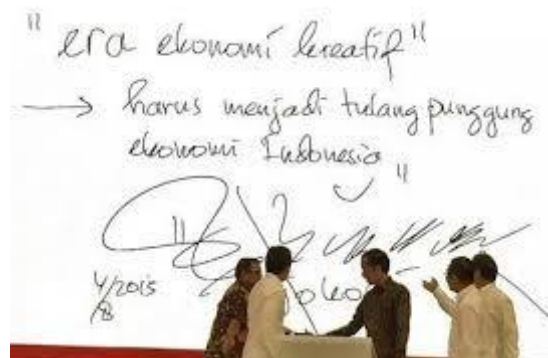 "era ekonomi kreatif"
→ harus menjadi tulang punggung
ekonomi Indonesia"
4/2015
8